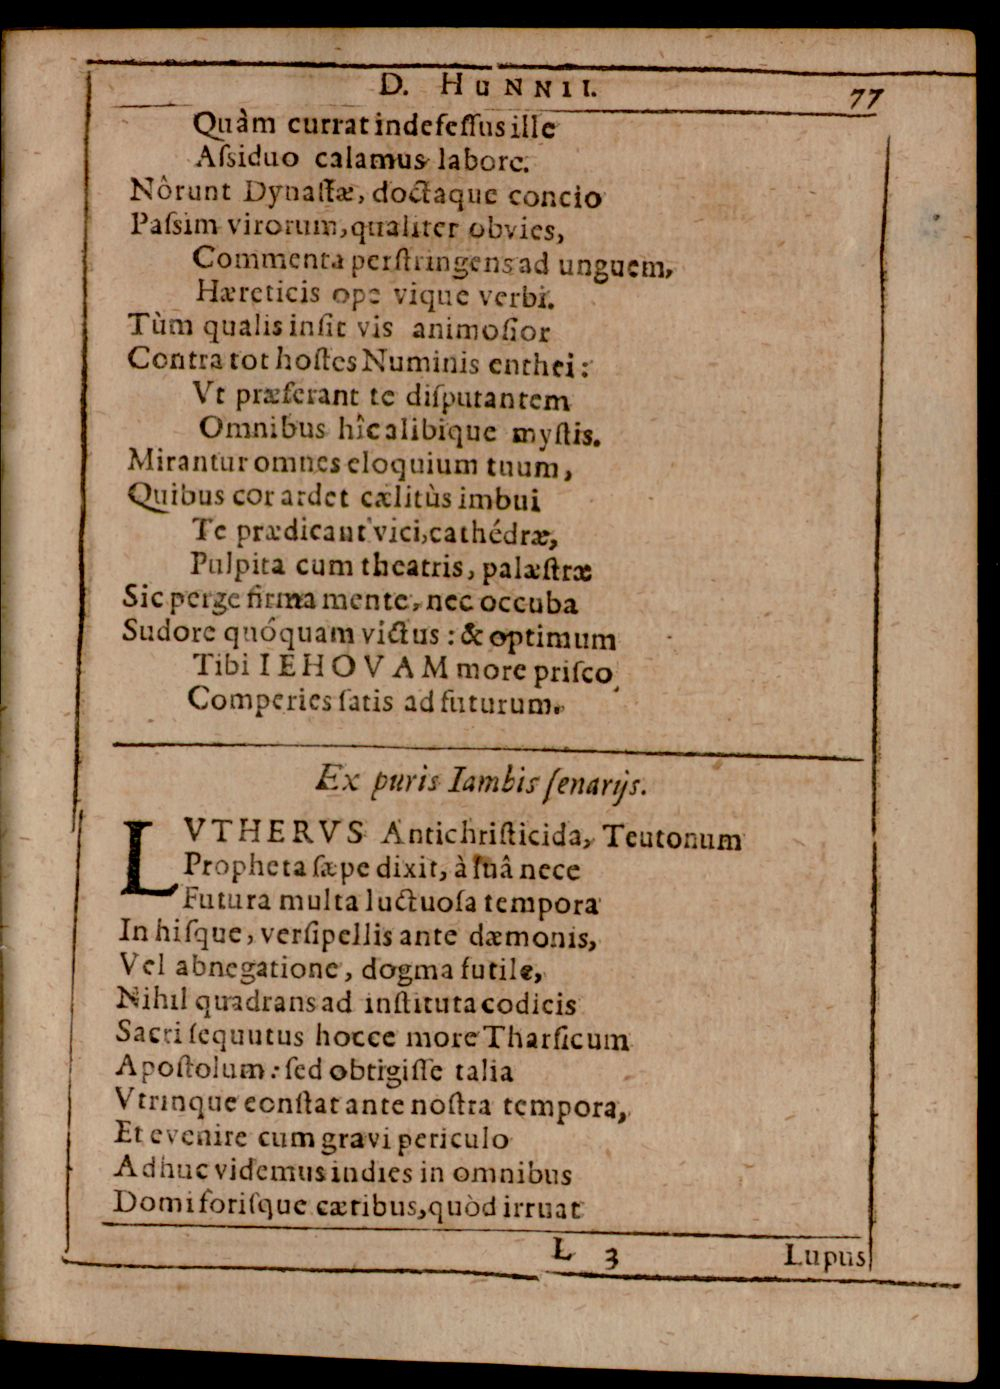 D. HUNNII. 77
Quàm currat indefeſſus ille
Aſsiduo calamus labore.
Nôrunt Dynaſtæ, doctaque concio
Paſsim virorum, qualiter obvies,
Commenta perſtringens ad unguem,
Hæreticis ope vique verbi.
Tùm qualis inſit vis animoſior
Contra tot hoſtes Numinis enthei:
Vt præferant te diſputantem
Omnibus hîc alibique myſtis.
Mirantur omnes eloquium tuum,
Quibus cor ardet cælitùs imbui
Te prædicant vici, cathédræ,
Pulpita cum theatris, palæſtræ
Sic perge firma mente, nec occuba
Sudore quóquam victus: & optimum
Tibi IEHOVAM more priſco
Comperies ſatis ad futurum.
Ex puris Iambis ſenarijs.
LVTHERVS Antichriſticida, Teutonum
Propheta ſæpe dixit, à ſuâ nece
Futura multa luctuoſa tempora
In hiſque, verſipellis ante dæmonis,
Vel abnegatione, dogma futile,
Nihil quadrans ad inſtituta codicis
Sacri ſequutus hocce more Tharſicum
Apoſtolum: ſed obtigiſſe talia
Vtrinque conſtat ante noſtra tempora,
Et evenire cum gravi periculo
Adhuc videmus indies in omnibus
Domi foriſque cætibus, quòd irruat
L 3 Lupus